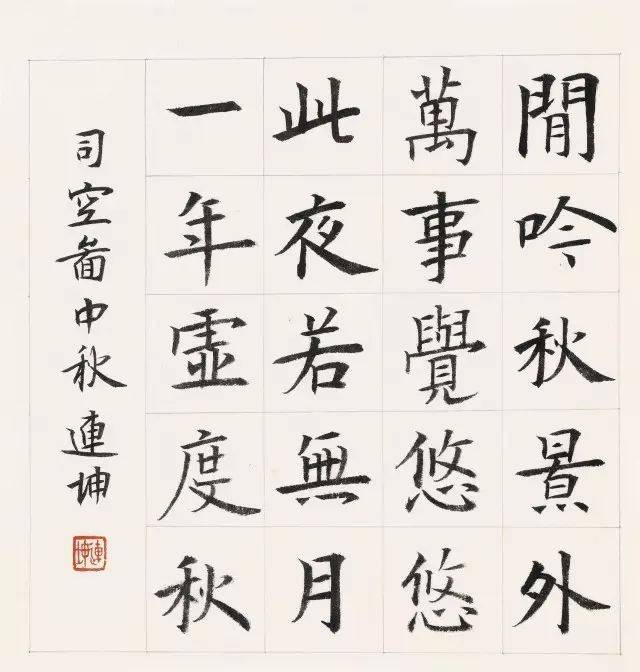 閒吟秋景外
萬事覺悠悠
此夜若無月
一年虛度秋
司空啚中秋連坤
連坤